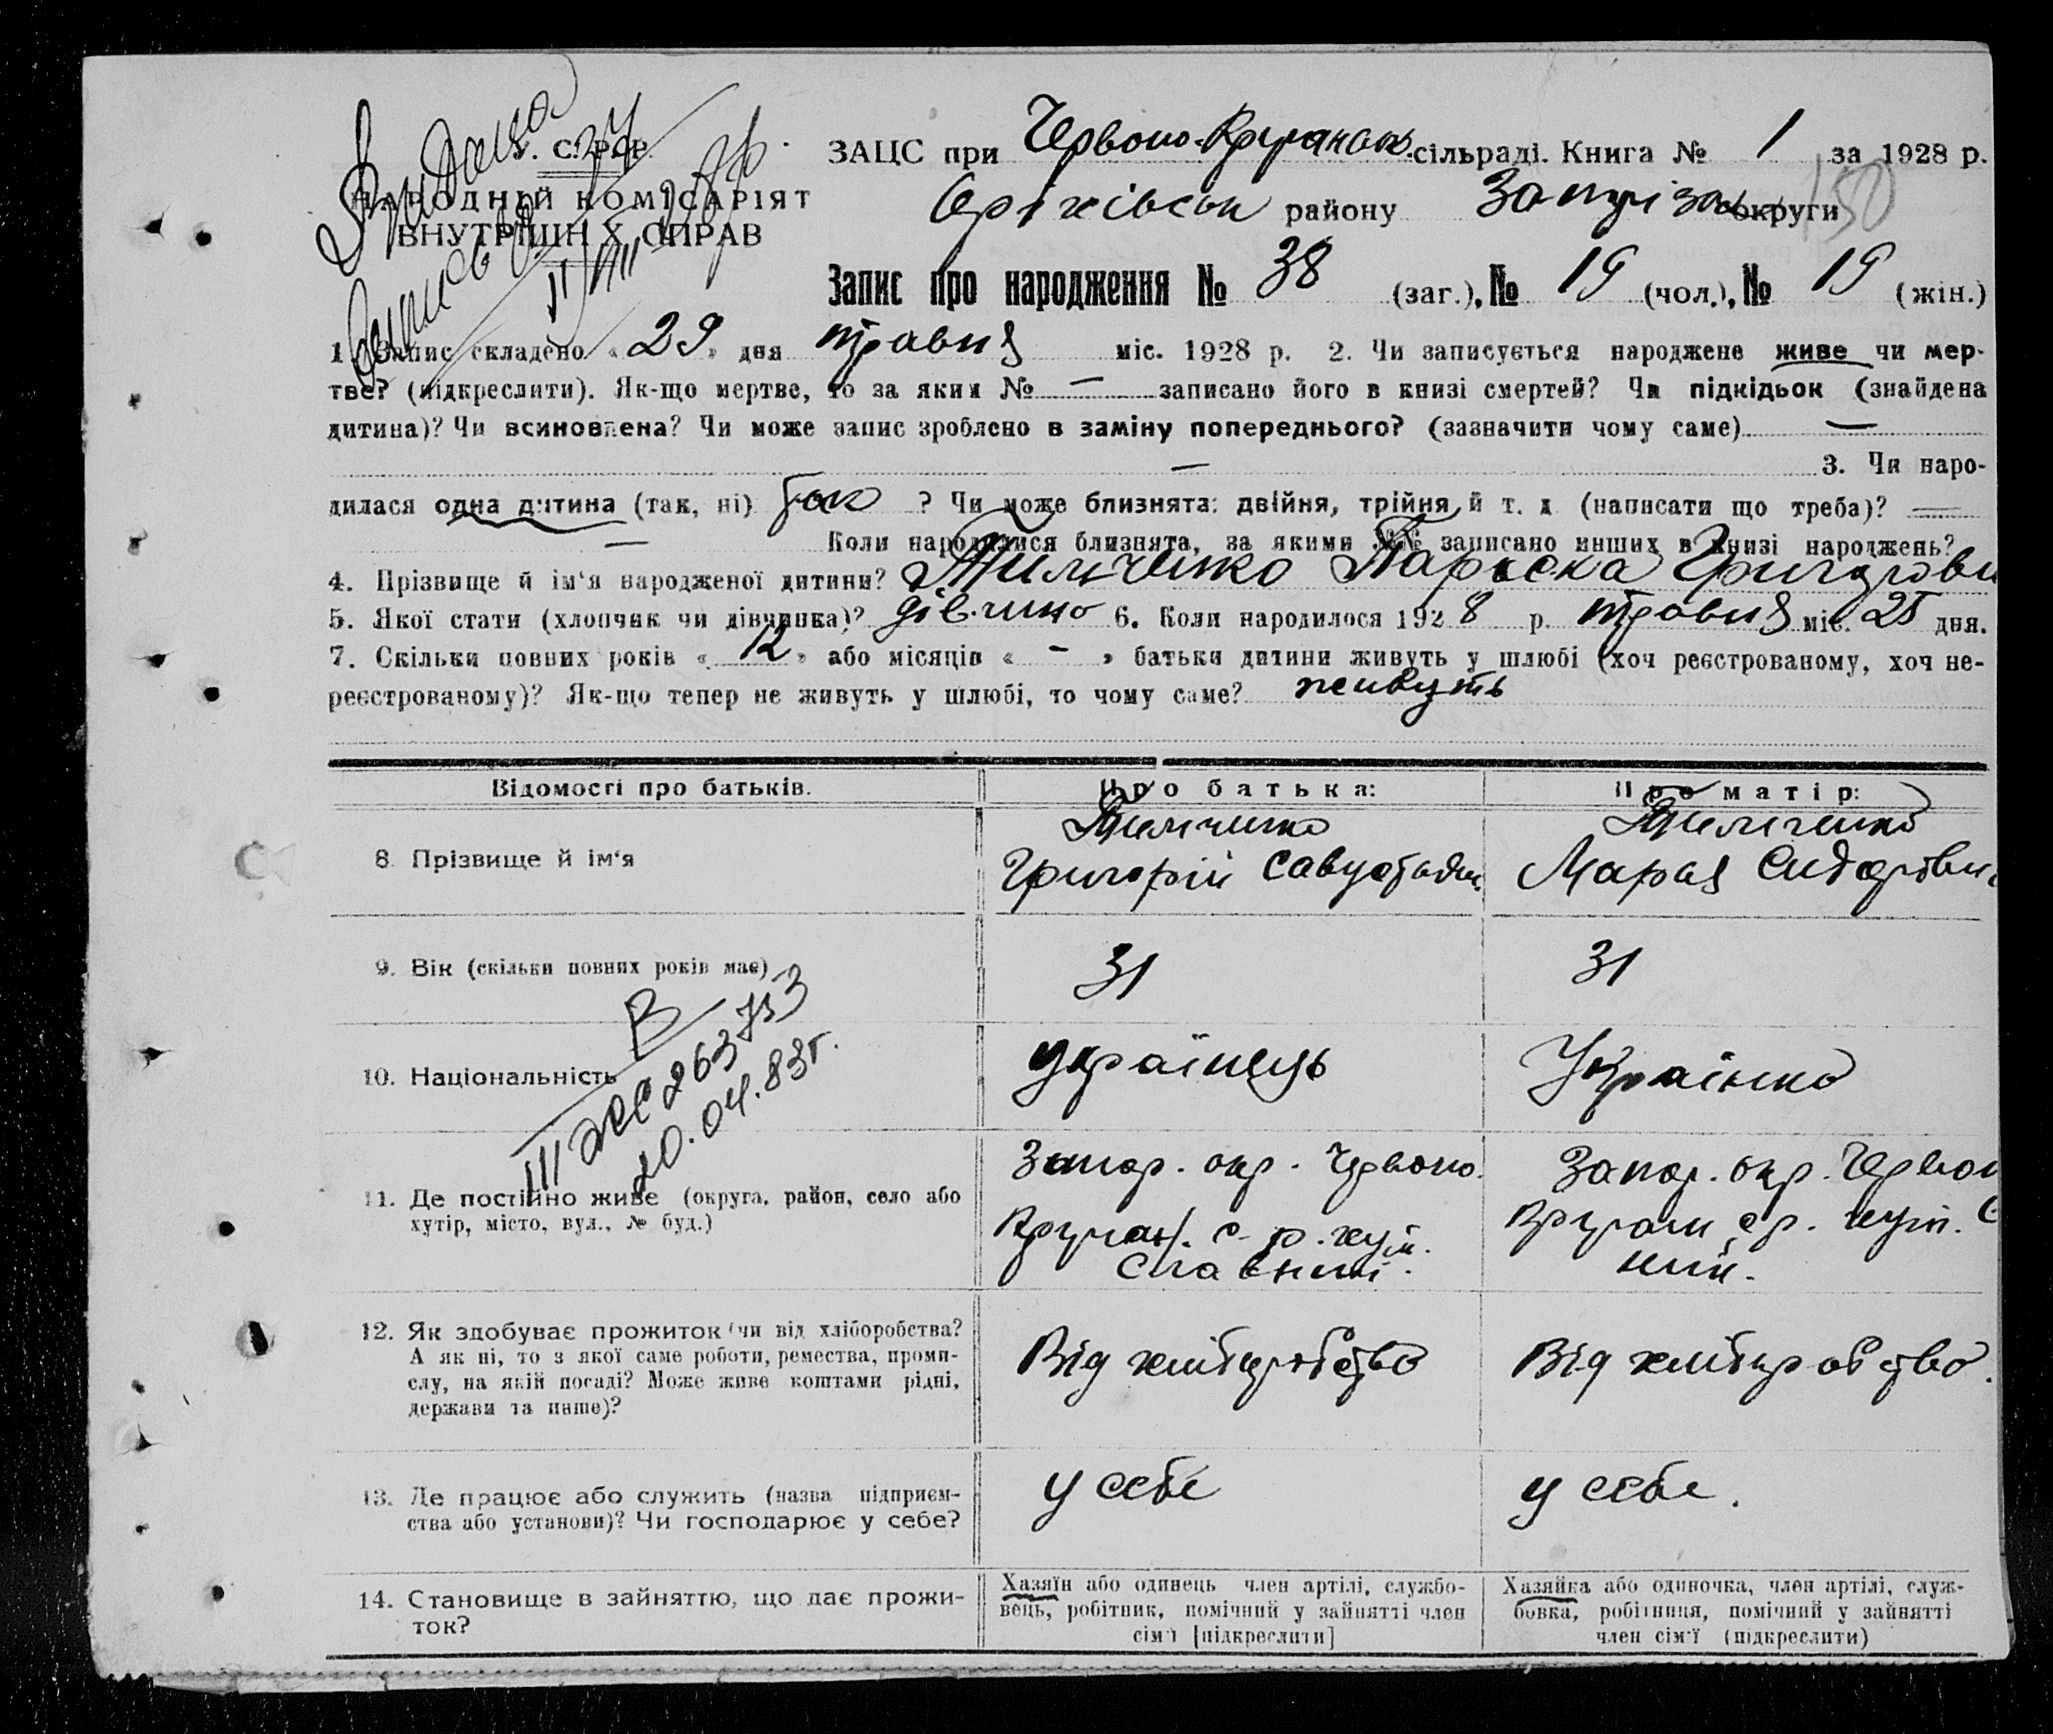 У. С. Р. Р.
НАРОДНІЙ КОМІСАРІЯТ
ВНУТРІШНІХ СПРАВ
Видана
ЗАЦС при Червоно-Кручанськ. сільраді. Книга № 1 за 1928 р.
Оріхівськ району Запоріз округи
150
Запис про народження № 38 (заг.), № 19 (чол.), № 19 (жін.)
1. Запис складено «29» дня травня міс. 1928 р. 2. Чи записується народжене живе чи мер-
тве? (підкреслити). Як-що мертве, то за яким № — записано його в книзі смертей? Чи підкідьок (знайдена
дитина)? Чи всиновлена? Чи може запис зроблено в заміну попереднього? (зазначити чому саме) —
— 3. Чи наро-
дилася одна дитина (так, ні) так ? Чи може близнята: двійня, трійня й т. д. (написати що треба)? —
— Коли народилися близнята, за якими №№ записано инших в книзі народжень?
4. Прізвище й ім'я народженої дитини? Тимченко Параска Григорови
5. Якої стати (хлопчик чи дівчинка)? дівчино 6. Коли народилося 1928 р. травня міс. 25 дня.
7. Скільки повних років «12» або місяців « - » батьки дитини живуть у шлюбі (хоч реєстрованому, хоч не-
реєстрованому)? Як-що тепер не живуть у шлюбі, то чому саме? живуть
Відомості про батьків. Про батька: Про матір:
8. Прізвище й ім'я
Тимченко
Григорій Савустьян.
Тимченко
Мария Сидорівни
9. Вік (скільки повних років має) 31 31
В
III ЖС 263753
20.04.83г.
10. Національність українець Українко
11. Де постійно живе (округа, район, село або
хутір, місто, вул., № буд.)
Запор. окр. Червоно.
Кручан. с-р. хут.
Славний.
Запор. окр. Червон
Кручан ср. хут. С
ний.
12. Як здобуває прожиток (чи від хліборобства?
А як ні, то з якої саме роботи, ремества, проми-
слу, на якій посаді? Може живе коштами рідні,
держави та инше)?
Від хліборобство
Від хліборобство.
13. Де працює або служить (назва підприєм-
ства або установи)? Чи господарює у себе?
у себе
у себе.
14. Становище в зайняттю, що дає прожи-
ток?
Хазяїн або одинець член артілі, службо-
вець, робітник, помічний у зайнятті член
сім'ї [підкреслити]
Хазяйка або одиночка, член артілі, служ-
бовка, робітниця, помічний у зайнятті
член сім'ї (підкреслити)